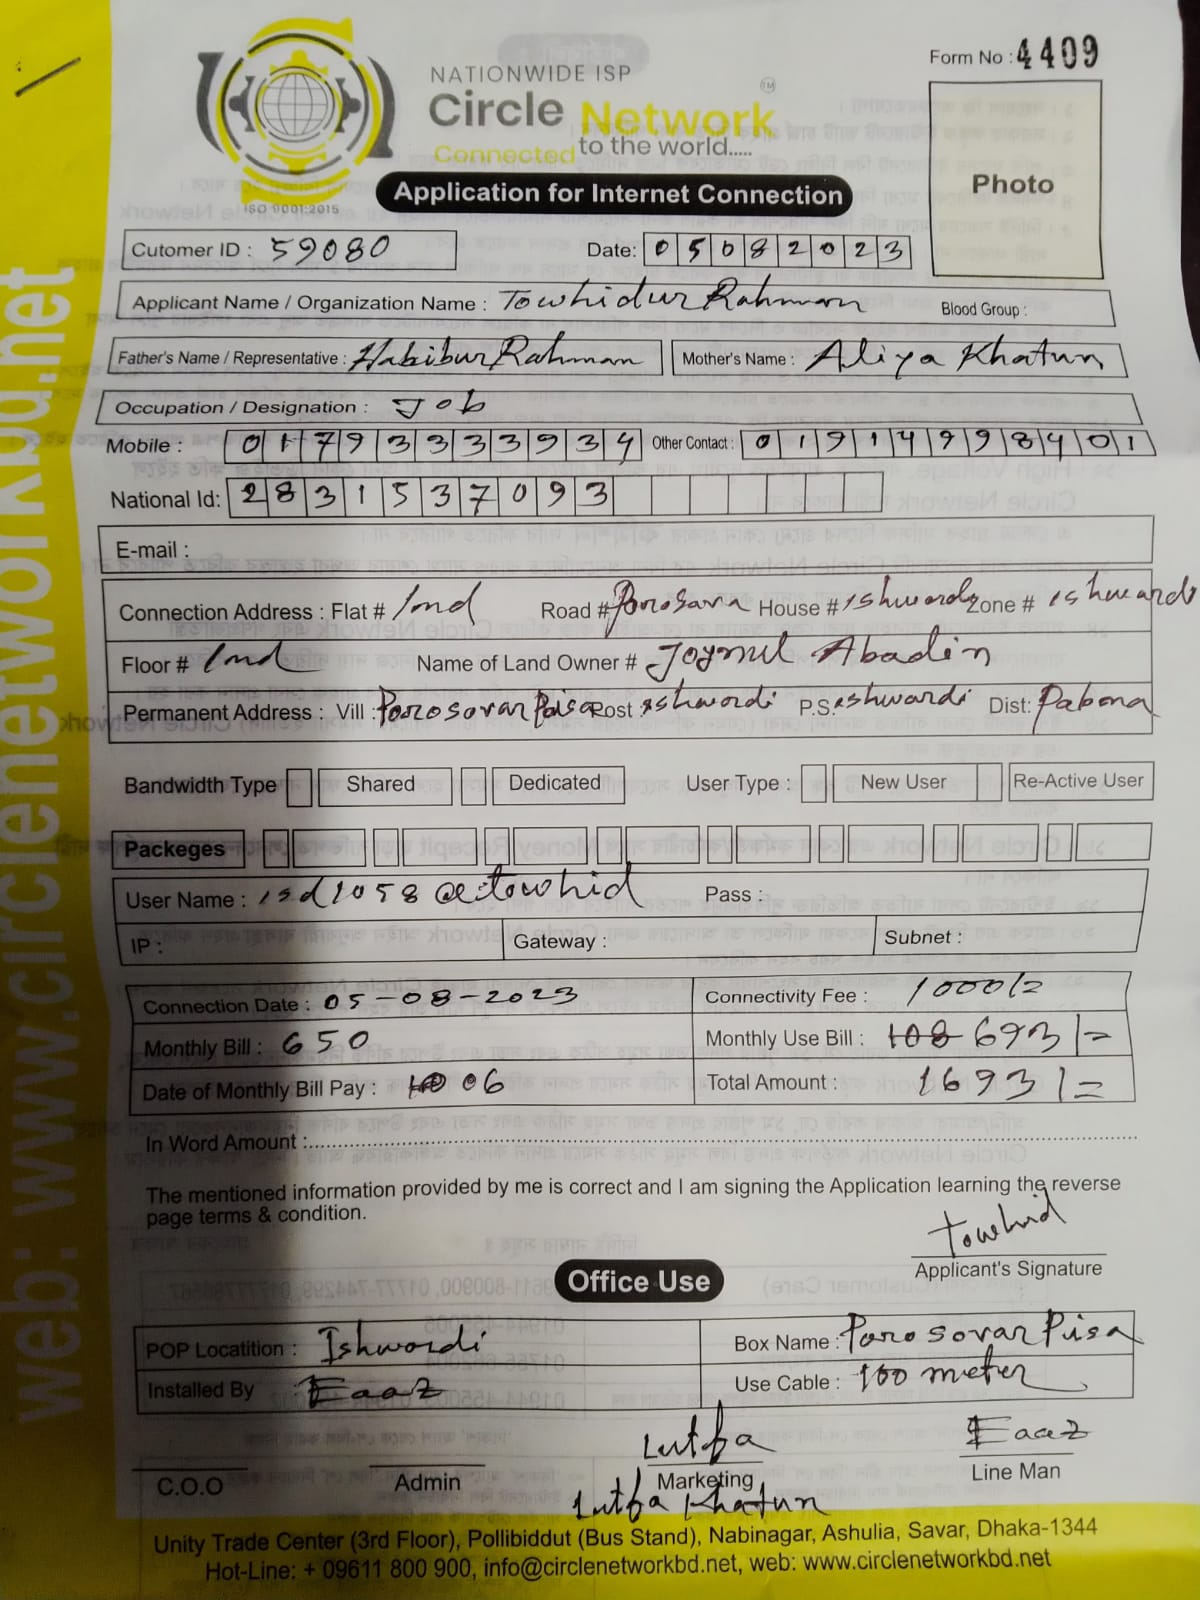 Form No : 4409
NATIONWIDE ISP
Circle Network TM
Connected to the world.....
ISO 9001:2015
Application for Internet Connection
Photo
Cutomer ID : 59080 Date: 05082023
Applicant Name / Organization Name : Towhidur Rahman Blood Group :
Father's Name / Representative : Habibur Rahman Mother's Name : Aliya Khatun
Occupation / Designation : Job
Mobile : 01793333934 Other Contact : 01914998401
National Id: 2831537093
E-mail :
Connection Address : Flat # 2nd Road # Porosava House # ishwardi Zone # ishwardi
Floor # 2nd Name of Land Owner # Joynul Abadin
Permanent Address : Vill : Porosovar Paisa Post : eshwardi P.S. eshwardi Dist: Pabona
Bandwidth Type Shared Dedicated User Type : New User Re-Active User
Packeges
User Name : isd1058@towhid Pass :
IP : Gateway : Subnet :
Connection Date : 05-08-2023 Connectivity Fee : 1000/=
Monthly Bill : 650 Monthly Use Bill : 108 693/=
Date of Monthly Bill Pay : 06 Total Amount : 1693/=
In Word Amount :
The mentioned information provided by me is correct and I am signing the Application learning the reverse
page terms & condition.
Towhid
Applicant's Signature
Office Use
POP Locatition : Ishwordi Box Name : Porosovar Pisa
Installed By Eaaz Use Cable : 100 meter
Lutfa Eaaz
C.O.O Admin Marketing Line Man
Lutfa Khatun
Unity Trade Center (3rd Floor), Pollibiddut (Bus Stand), Nabinagar, Ashulia, Savar, Dhaka-1344
Hot-Line: + 09611 800 900, info@circlenetworkbd.net, web: www.circlenetworkbd.net
web: www.circlenetworkbd.net